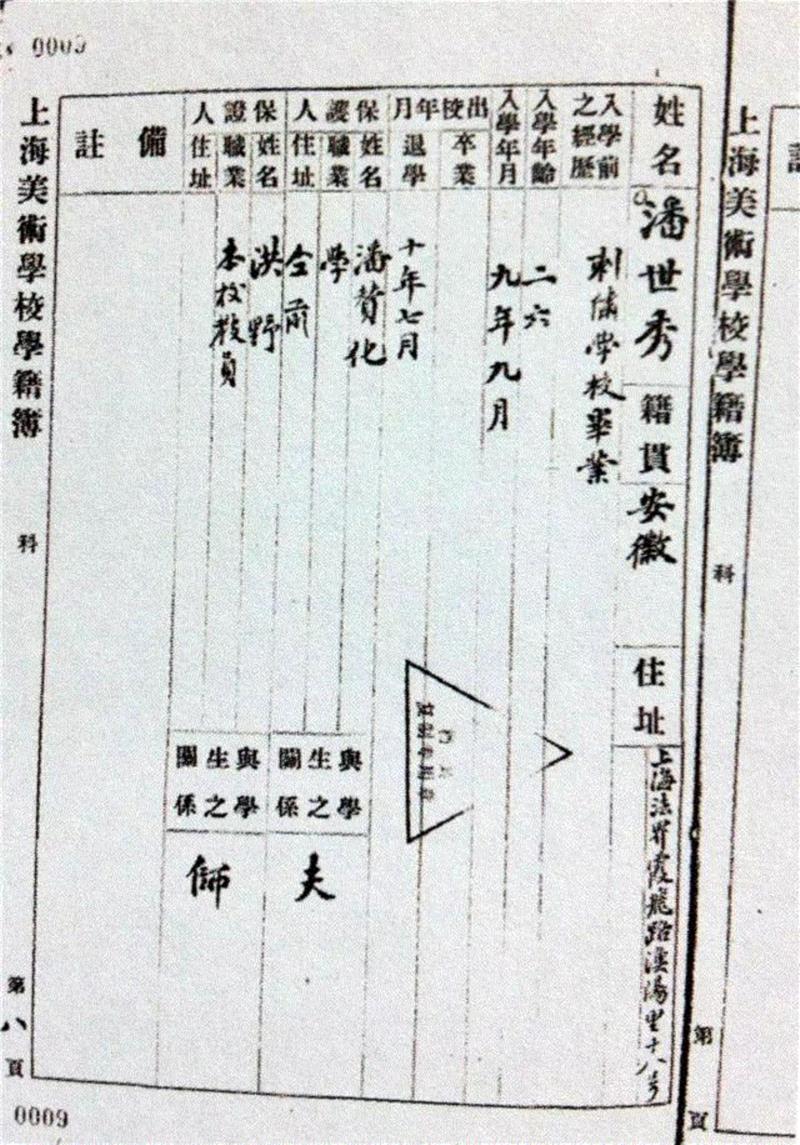 0009
上海美術學校學籍簿
第
頁
科
姓名
潘世秀
籍貫
安徽
住址
上海法界霞飛路漁陽里十八号
入學前之經歷
刺繡學校畢業
入學年齡
二六
入學年月
九年九月
出校年月
卒業
退學
十年七月
保護人
姓名
潘贊化
職業
學
住址
仝前
與學生之關係
夫
保證人
姓名
洪野
職業
本校教員
住址
與學生之關係
師
備註
上海美術學校學籍簿
科
第八頁
0009